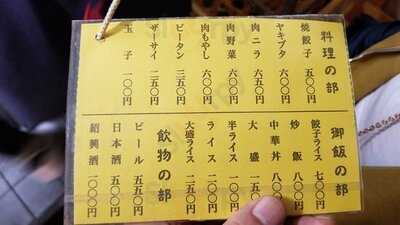 料理の部
焼餃子 五〇〇円
ヤキブタ 六〇〇円
肉ニラ 六五〇円
肉野菜 六〇〇円
肉もやし 六〇〇円
ピータン 三五〇円
ザーサイ 二五〇円
玉子 一〇〇円
御飯の部
餃子ライス 七〇〇円
炒飯 八〇〇円
中華丼 八〇
大盛 一五〇
半ライス 一〇〇円
ライス 二〇〇円
大盛ライス 二五〇円
飲物の部
ビール 五五〇円
日本酒 五〇〇円
紹興酒 一〇〇〇円